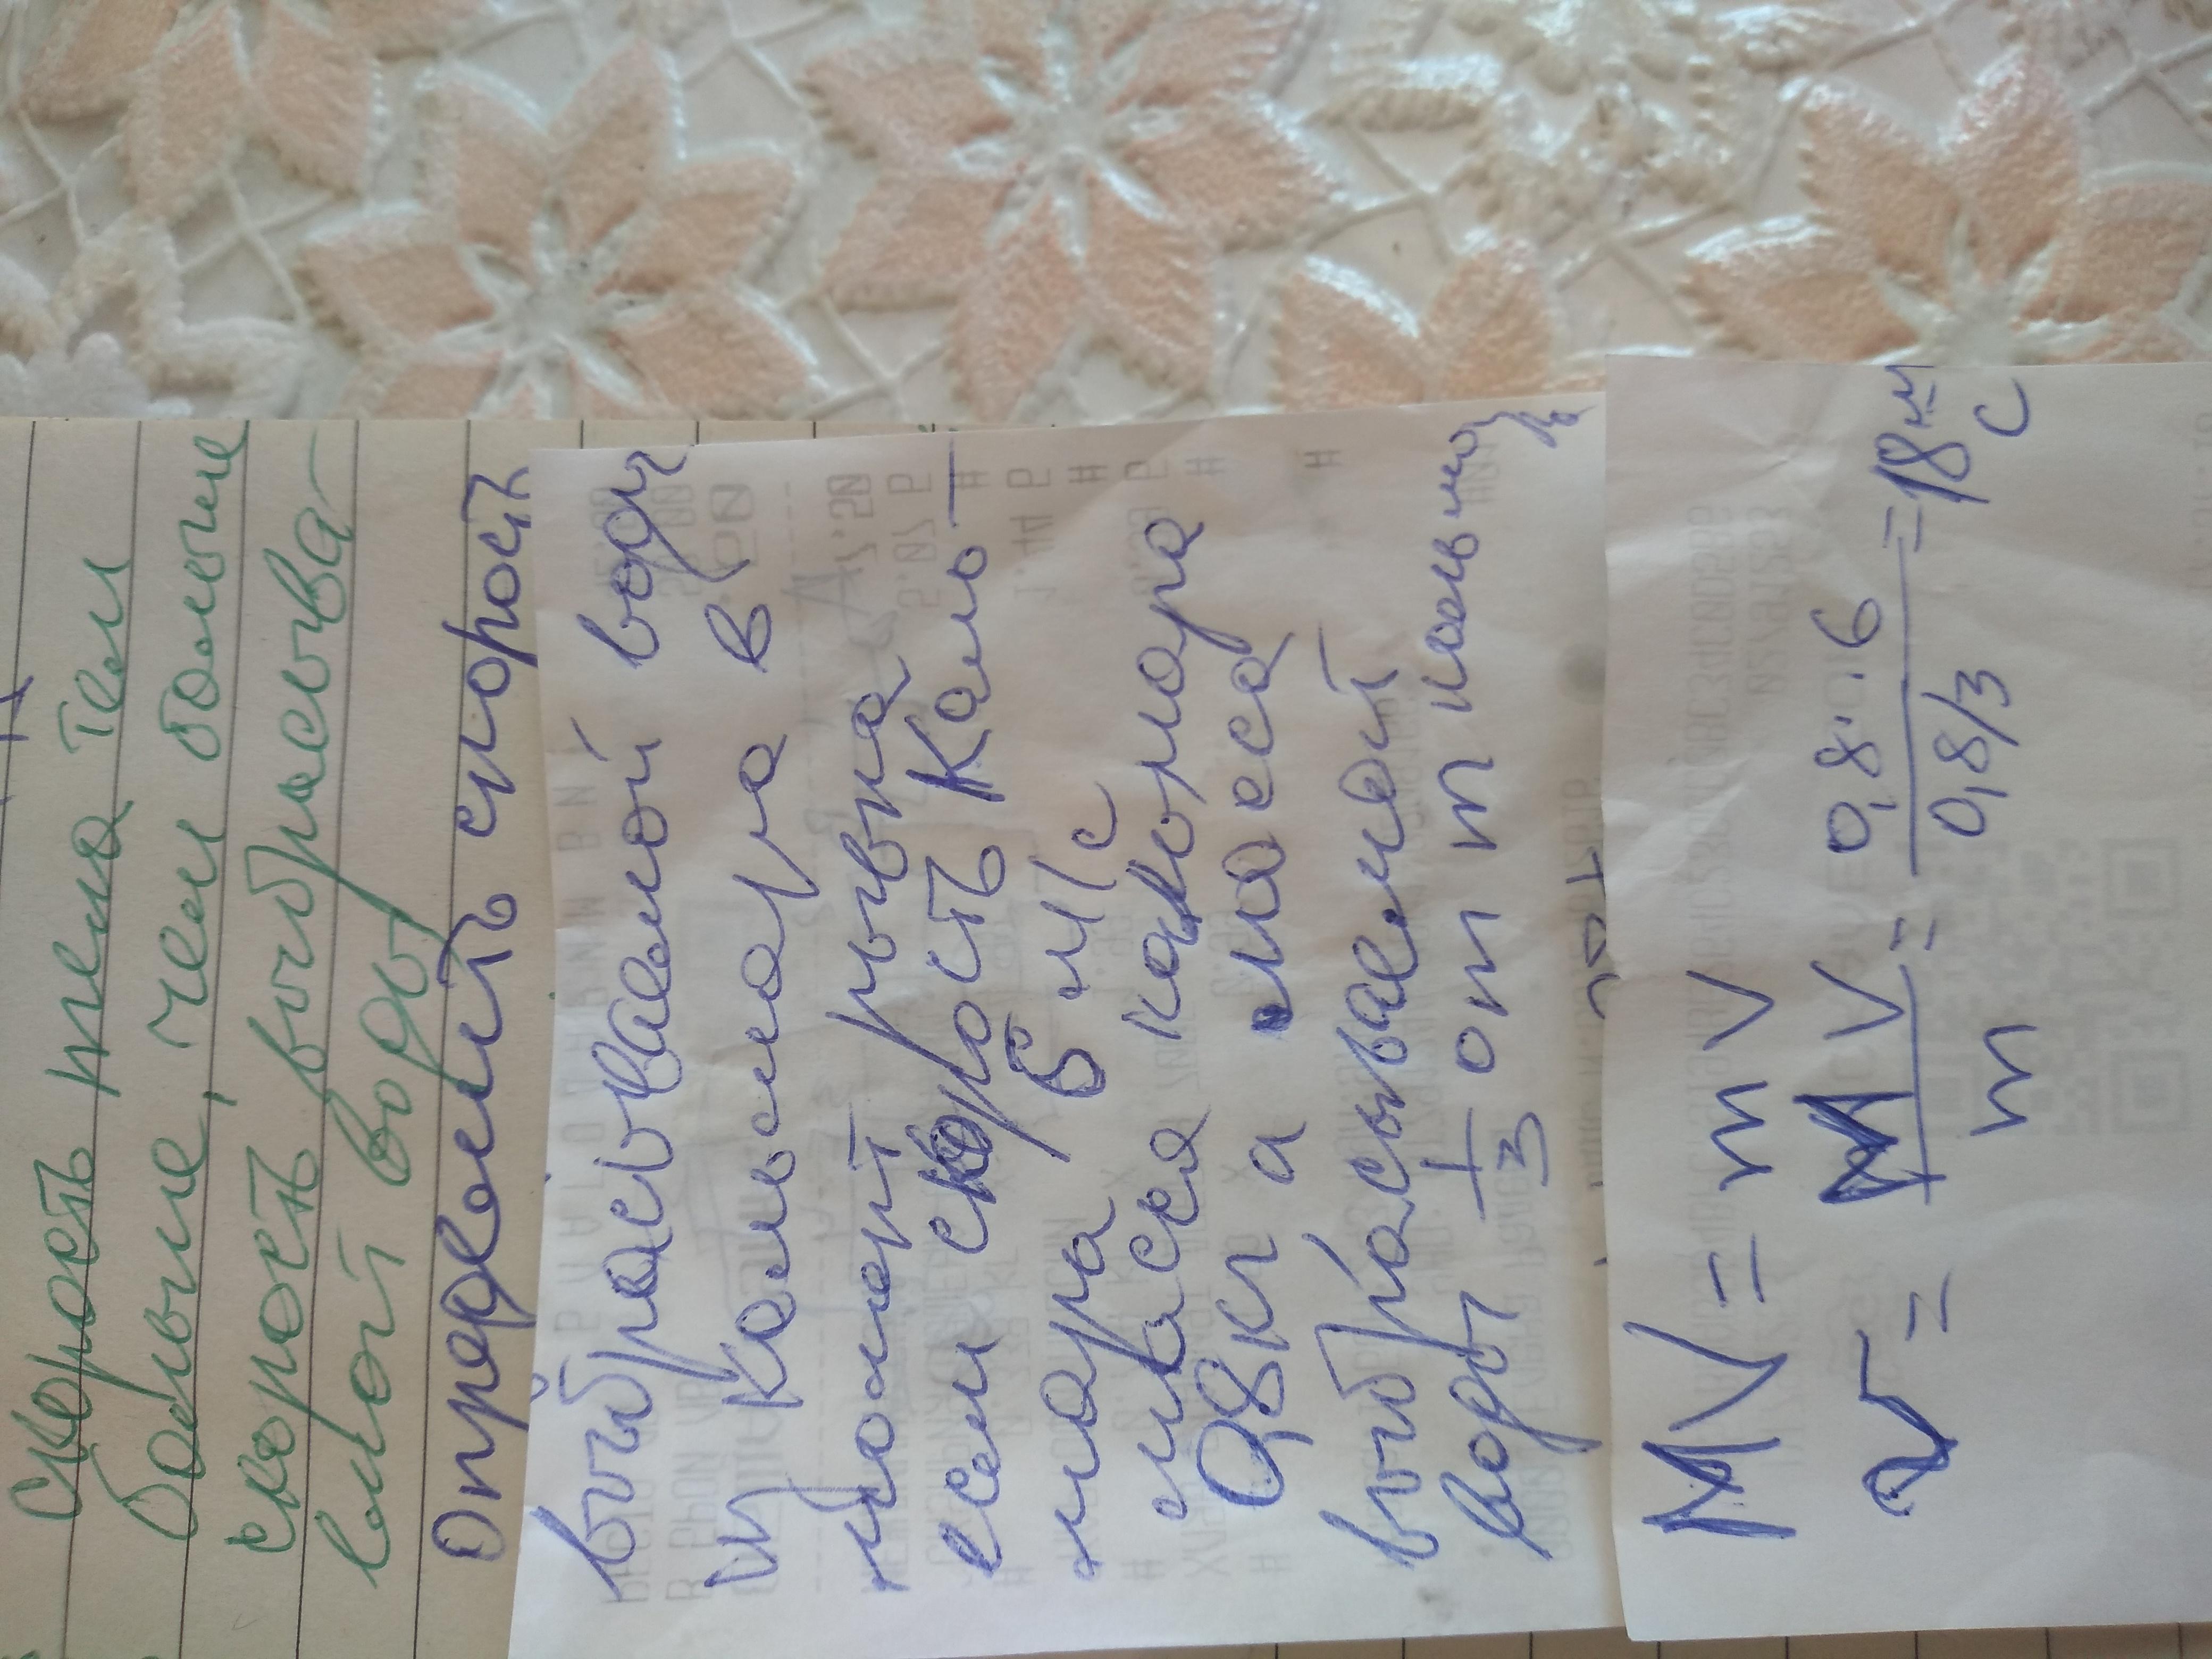 скорость тела тем
больше, чем больше
скорость выбрасыва-
емой воды
Определить скорость
выбрасываемой воды
из кальмара в
момент рывка
если скорость Каль-
мара 6 м/с
масса кальмара
0,8кг а масса
выбрасываемой
воды 1/3 от
MV = mV
v = MV/m = 0,8·6/0,8/3 = 18 м/с